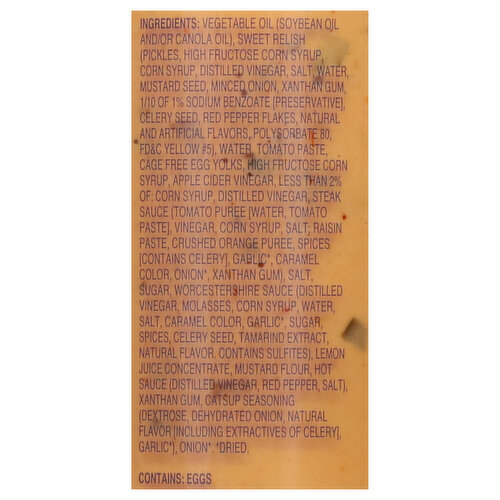 INGREDIENTS: VEGETABLE OIL (SOYBEAN OIL
AND/OR CANOLA OIL), SWEET RELISH
(PICKLES, HIGH FRUCTOSE CORN SYRUP,
CORN SYRUP, DISTILLED VINEGAR, SALT, WATER,
MUSTARD SEED, MINCED ONION, XANTHAN GUM,
1/10 OF 1% SODIUM BENZOATE [PRESERVATIVE],
CELERY SEED, RED PEPPER FLAKES, NATURAL
AND ARTIFICIAL FLAVORS, POLYSORBATE 80,
FD&C YELLOW #5), WATER, TOMATO PASTE,
CAGE FREE EGG YOLKS, HIGH FRUCTOSE CORN
SYRUP, APPLE CIDER VINEGAR, LESS THAN 2%
OF: CORN SYRUP, DISTILLED VINEGAR, STEAK
SAUCE (TOMATO PUREE [WATER, TOMATO
PASTE], VINEGAR, CORN SYRUP, SALT, RAISIN
PASTE, CRUSHED ORANGE PUREE, SPICES
[CONTAINS CELERY], GARLIC*, CARAMEL
COLOR, ONION*, XANTHAN GUM), SALT,
SUGAR, WORCESTERSHIRE SAUCE (DISTILLED
VINEGAR, MOLASSES, CORN SYRUP, WATER,
SALT, CARAMEL COLOR, GARLIC*, SUGAR,
SPICES, CELERY SEED, TAMARIND EXTRACT,
NATURAL FLAVOR. CONTAINS SULFITES), LEMON
JUICE CONCENTRATE, MUSTARD FLOUR, HOT
SAUCE (DISTILLED VINEGAR, RED PEPPER, SALT),
XANTHAN GUM, CATSUP SEASONING
(DEXTROSE, DEHYDRATED ONION, NATURAL
FLAVOR [INCLUDING EXTRACTIVES OF CELERY],
GARLIC*), ONION*. *DRIED.
CONTAINS: EGGS